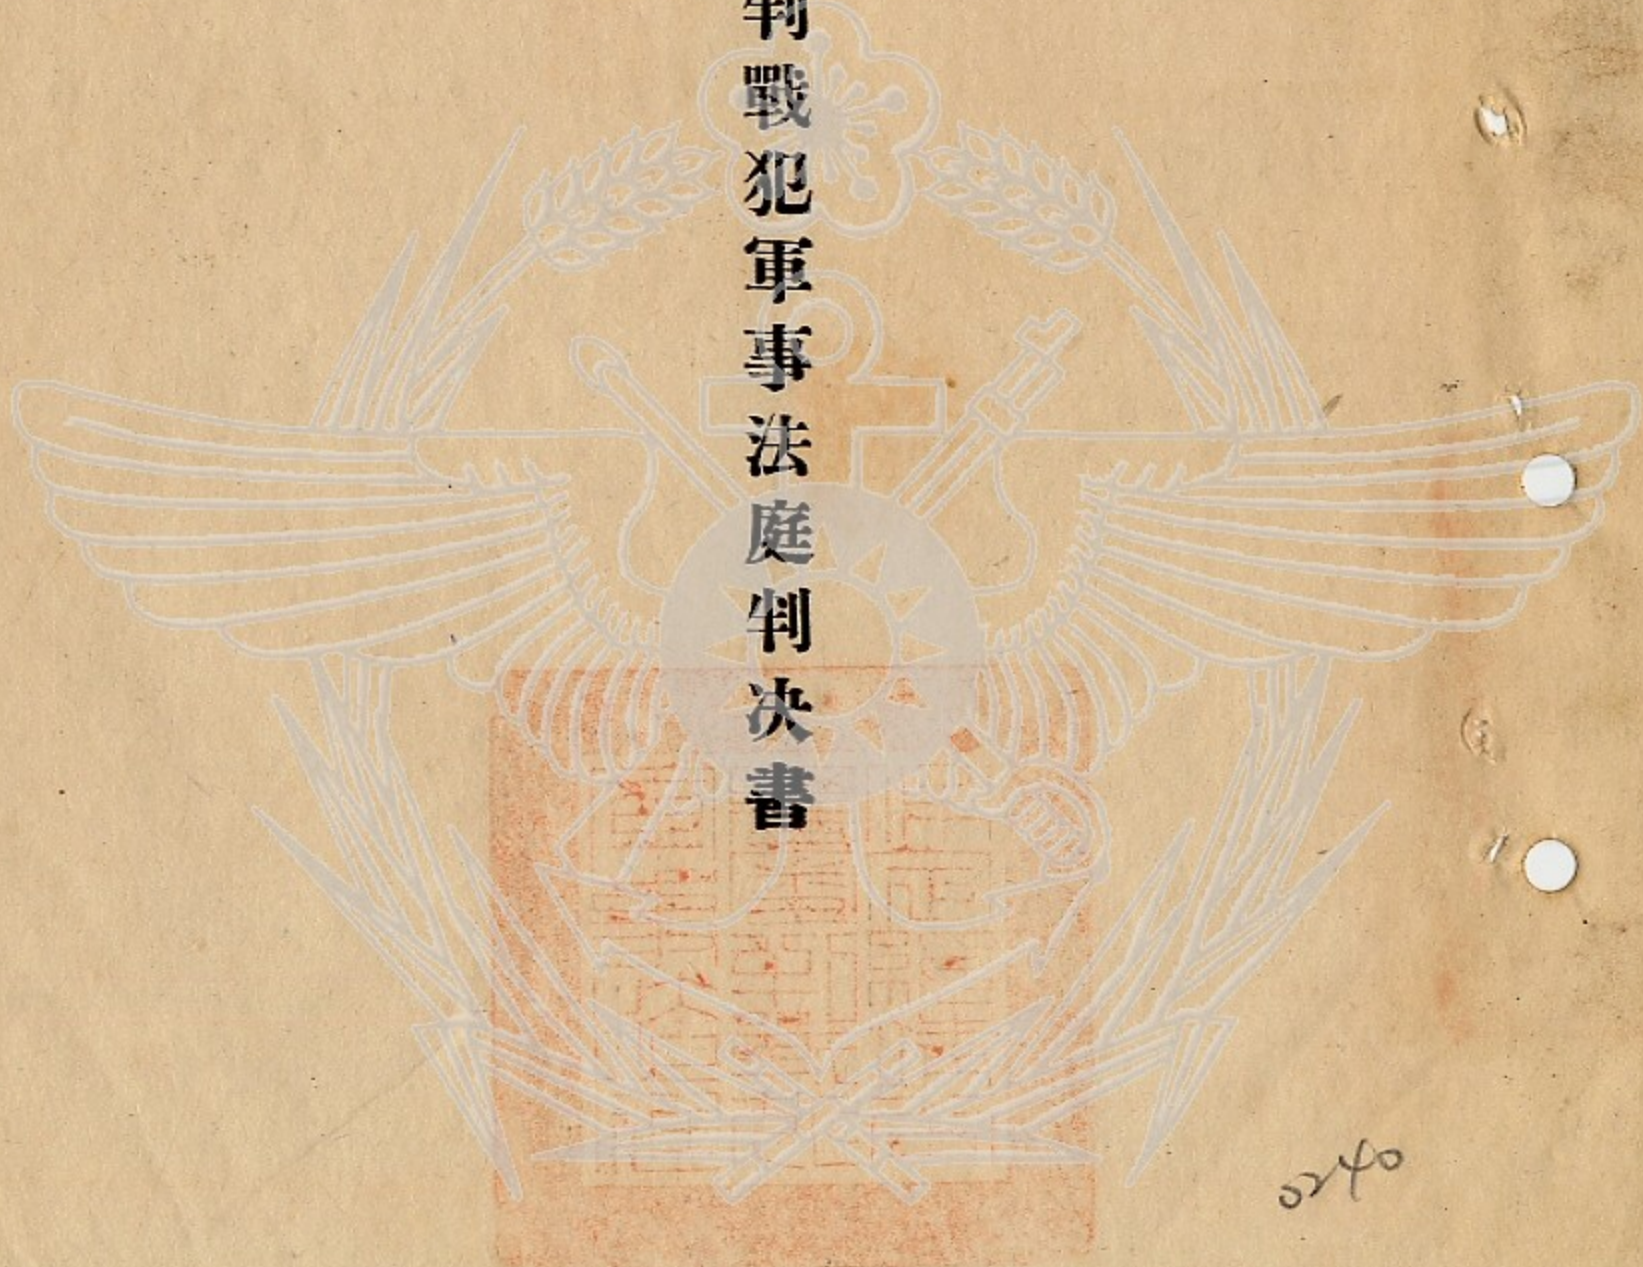 判戰犯軍事法庭判決書
0240